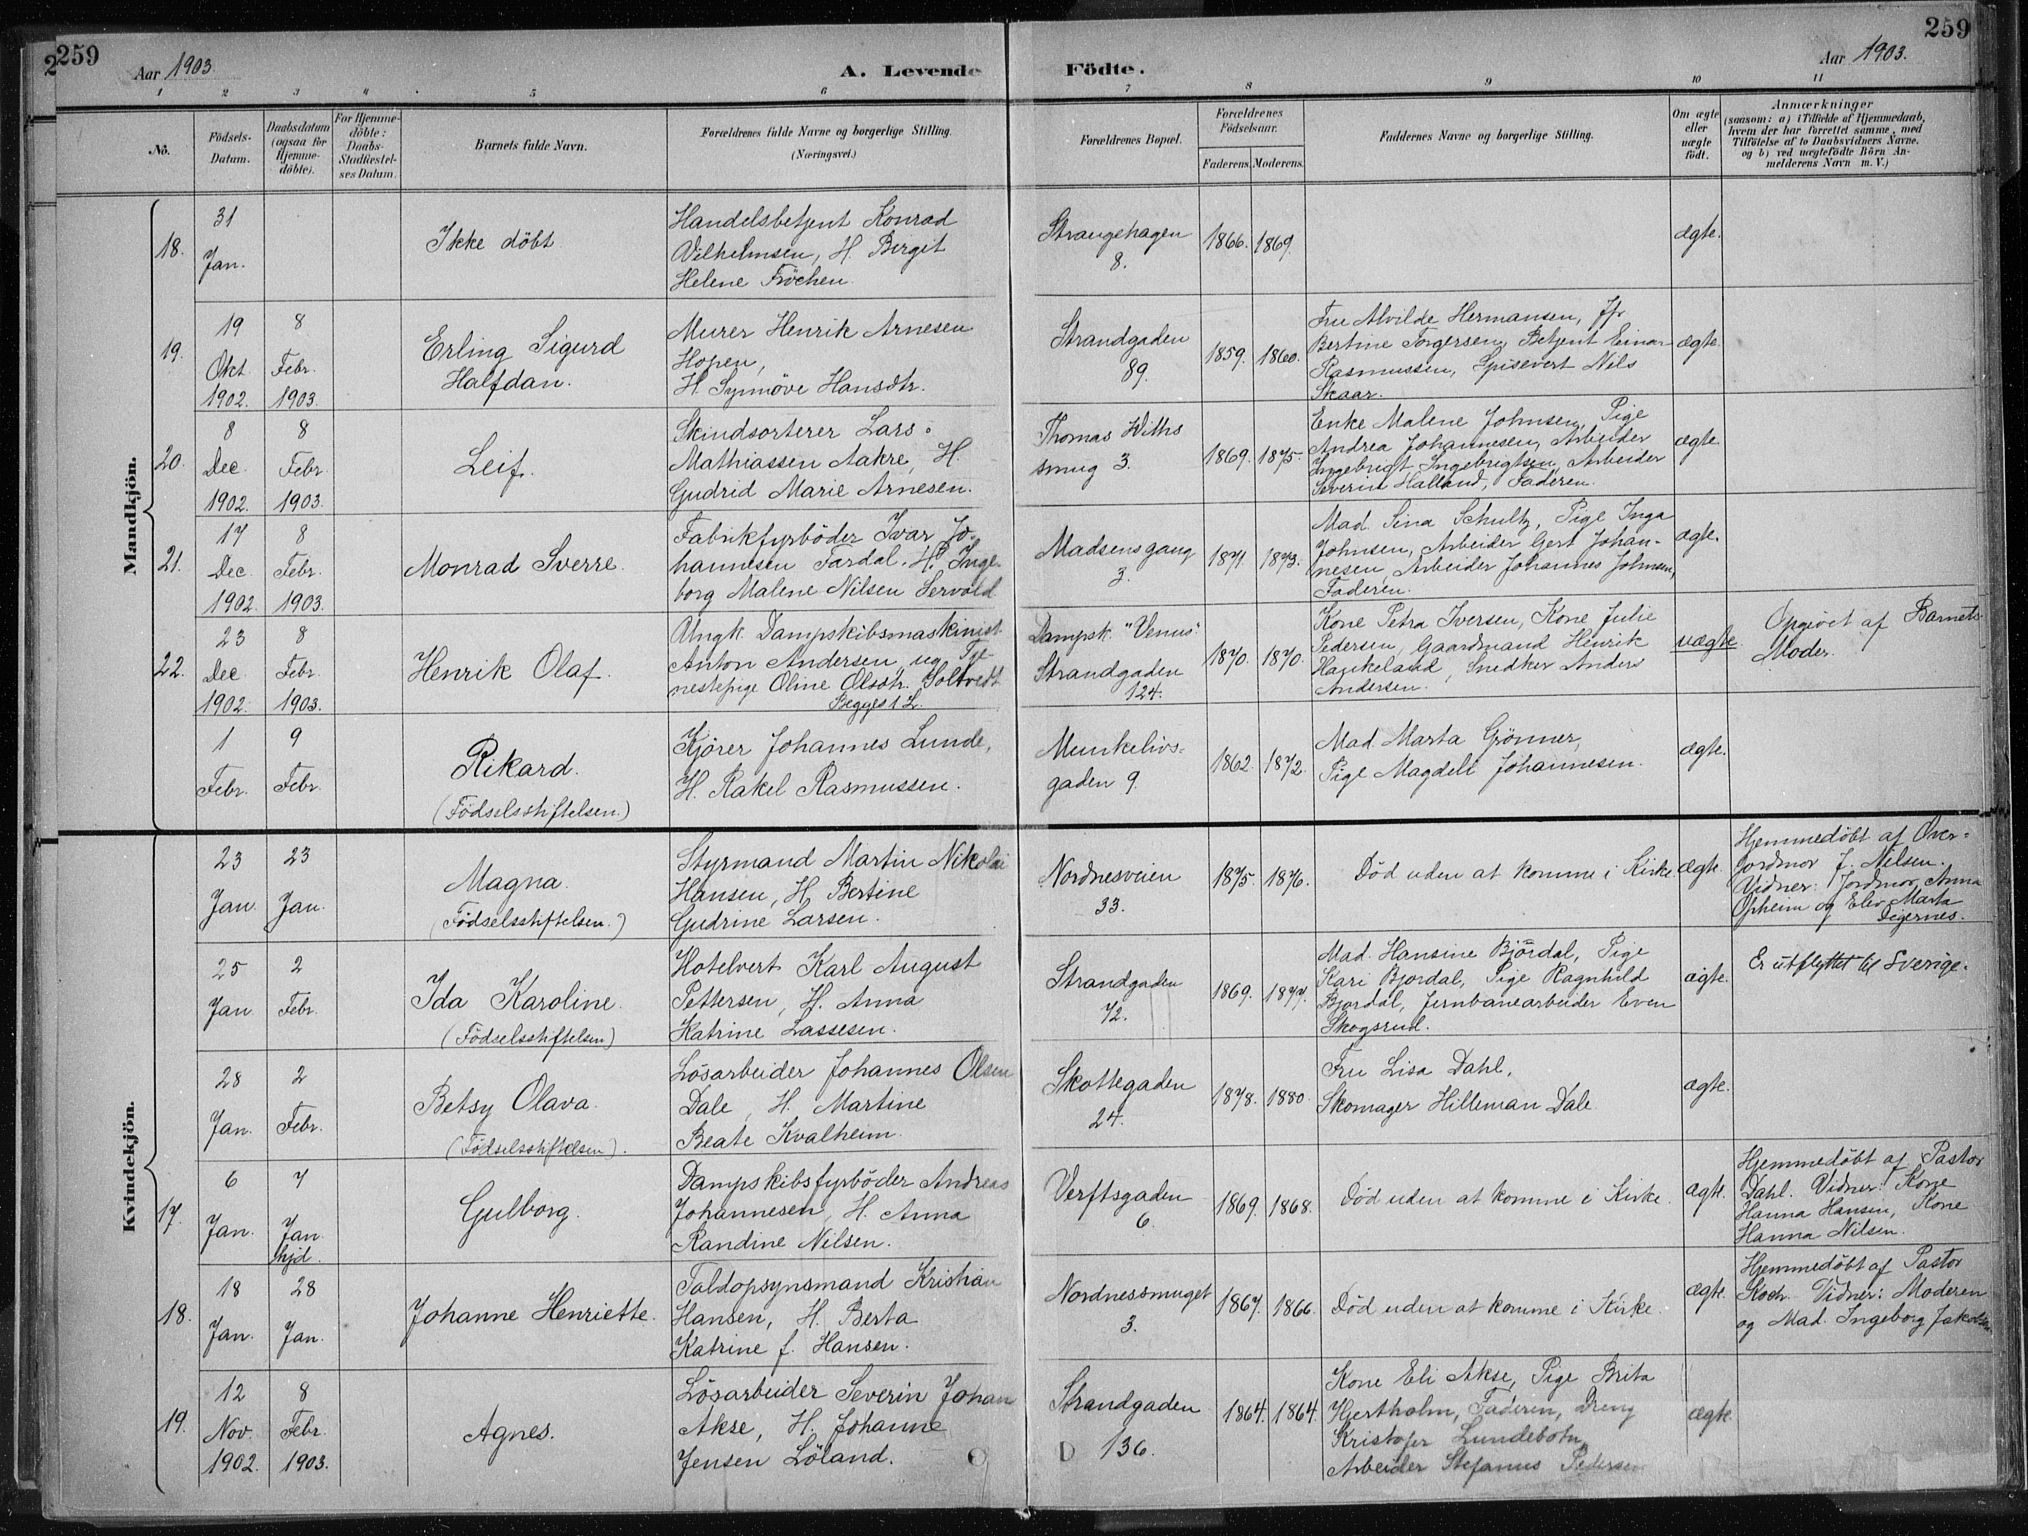 2
259
Aar 1903.
A. Levende Födte.
Aar 1903.
259
1 2 3 4 5 6 7 8 9 10 11
No.
Födsels-
Datum.
Daabsdatum
(ogsaa för
Hjemme-
döbte).
For Hjemme-
döbte:
Daabs-
Stadfæstel-
ses Datum.
Barnets fulde Navn.
Forældrenes fulde Navne og borgerlige Stilling.
(Næringsvei.)
Forældrenes Bopæl.
Forældrenes
Födselsaar.
Faderens. Moderens.
Faddernes Navne og borgerlige Stilling.
Om ægte
eller
uægte
födt.
Anmærkninger
(saasom: a) i Tilfælde af Hjemmedaab,
hvem der har forrettet samme, med
Tilföielse af to Daabsvidners Navne,
og b) ved uægtefödte Börn An-
melderens Navn m. V.)
Mandkjön.
18.
31
Jan.
Ikke döbt
Handelsbetjent Konrad
Vilhelmsen, H. Birgit
Helene Fröchen.
Strangehagen
8.
1866. 1869.
ægte.
19.
19
Okt.
1902.
8
Febr.
1903.
Erling Sigurd
Halfdan.
Murer Henrik Arnesen
Hopen,
H. Synnöve Hansdtr.
Strandgaden
89.
1859. 1860.
Fru Alvilde Hermansen, Jfr
Bertine Torgersen, Betjent Einar
Rasmussen, Spisevert Nils
Skaar.
ægte.
20.
8
Dec.
1902.
8
Febr
1903.
Leif.
Skindsorterer Lars
Mathiassen Aakre, H.
Gudrid Marie Arnesen.
Thomas Withs
smug 3.
1869. 1875.
Enke Malene Johnsen, Pige
Andrea Johannesen, Arbeider
Ingebrigt Ingebrigtsen, Arbeider
Severin Halland, Faderen.
ægte.
21.
17
Dec.
1902.
8
Febr.
1903.
Monrad Sverre.
Fabrikfyrböder Ivar Jo-
hannesen Fardal. H. Inge-
borg Malene Nilsen Servold
Madsensgang
3.
1871. 1873.
Mad. Sina Schultz, Pige Inga
Johnsen, Arbeider Gert Johan-
nesen, Arbeider Johannes Johnsen,
Faderen.
ægte.
22.
23
Dec
1902.
8
Febr.
1903.
Henrik Olaf.
Ungk. Dampskibsmaskinist
Anton Andersen, ug Tje-
nestepige Oline Olsdtr. Soltvedt
Begges 1 L.
Dampsk. "Venus"
Strandgaden
124.
1870. 1870.
Kone Petra Iversen, Kone Julie
Pedersen, Gaardmand Henrik
Haukeland, Snedker Anders
Andersen.
uægte
Opgivet af Barnets
Moder.
1
Febr.
9
Febr.
Rikard.
(Födselsstiftelsen.)
Kjörer Johannes Lunde,
H. Rakel Rasmussen.
Munkelivs-
gaden 9.
1862. 1872.
Mad. Marta Grönner,
Pige Magdeli Johannesen.
ægte.
Kvindekjön.
23
Jan.
23
Jan.
Magna.
(Födselsstiftelsen.)
Styrmand Martin Nikolai
Hansen, H. Bertine
Gudrine Larsen.
Nordnesveien
33.
1875. 1876.
Död uden at komme i Kirke.
ægte.
Hjemmedöbt af Over-
jordmor J. Nilsen.
Vidner: Jordmor Anna
Opheim og Elev Marta
Digernes.
25
Jan
2
Febr.
Ida Karoline.
(Födselsstiftelsen)
Hotelvert Karl August
Pettersen, H. Anna
Katrine Lassesen.
Strandgaden
72.
1869. 1877.
Mad. Hansine Bjordal, Pige
Kari Bjordal, Pige Ragnhild
Bjordal, Jernbanearbeider Even
Skogsrud.
ægte.
Er utflyttet til Sverige.
28
Jan.
2
Febr.
Betsy Olava.
(Födselsstiftelsen).
Lösarbeider Johannes Olsen
Dale, H. Martine
Beate Kvalheim.
Skottegaden
24.
1878. 1880.
Fru Lisa Dahl,
Skomager Hilleman Dale
ægte.
17.
6
Jan.
7
Jan.
hjd.
Gulborg.
Dampskibsfyrböder Andreas
Johannesen, H. Anna
Randine Nilsen.
Verftsgaden
6.
1869. 1868.
Död uden at komme i Kirke.
ægte.
Hjemmedöbt af Pastor
Dahl. Vidner: Kone
Hanna Hansen, Kone
Hanna Nilsen.
18.
18
Jan.
28
Jan.
Johanne Henriette.
Toldopsynsmand Kristian
Hansen, H. Berta
Katrine f. Hansen.
Nordnessmuget
3.
1867. 1866.
Död uden at komme i Kirke.
ægte.
Hjemmedöbt af Pastor
Koch. Vidner: Moderen
og Mad. Ingeborg Jakobsen
19.
12
Nov.
1902.
8
Febr.
1903.
Agnes.
Lösarbeider Severin Johan
Akse, H. Johanne
Jensen Löland.
Strandgaden
136.
1864. 1864.
Kone Eli Akse, Pige Brita
Hjertholm, Faderen, Dreng
Kristofer Lundebotn,
Arbeider Stefanus Pedersen
ægte.